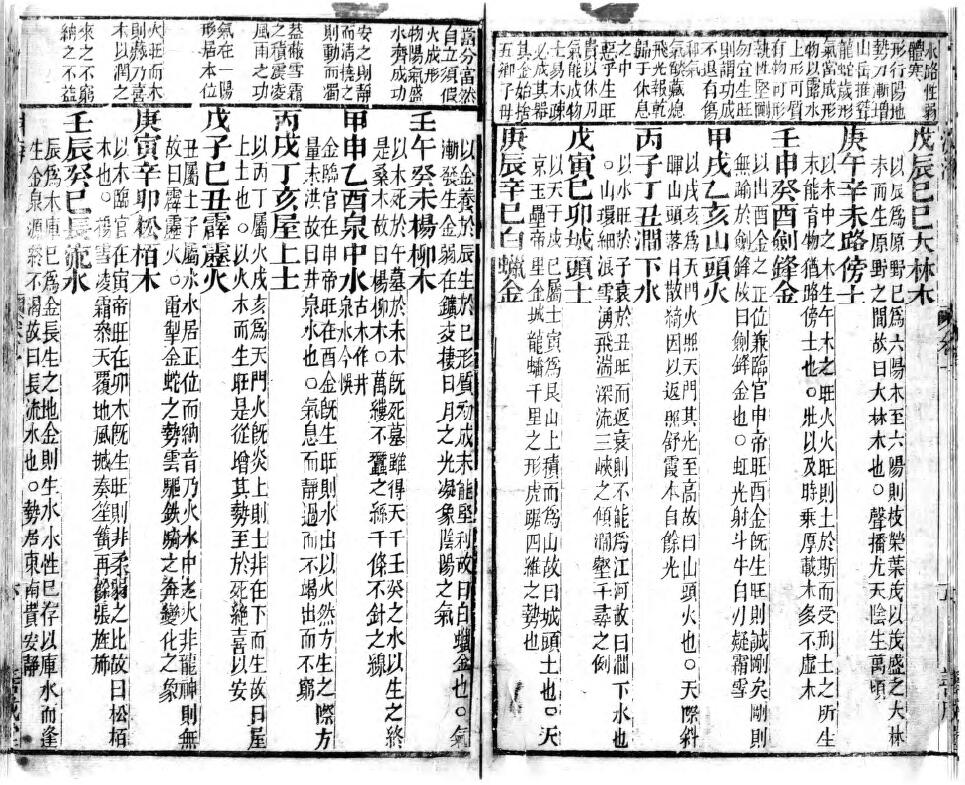 水路性弱
體寒
形行陽地
勢力漸增
山岳推聳
龍蛇歲形
氣當成形
物以露水
上形可質
有物可形
執性堅剛
勿宜生旺
則謂功成
不退有傷
和氣
氣斂藏熄
飛光報乾
歸于休息
之中
惡乎生旺
貴以休刃
氣能成物
士易木疎
必成其器
其金始捨
五卿子母
戊辰己巳大林木
以辰爲原野巳爲六陽木至六陽則枝榮葉茂以茂盛之大林
木而生原野之間故曰大林木也○聲播九天陰生萬頃
庚午辛未路傍土
以未中之木生午木之旺火火旺則土於斯而受刑土之所生
未能育物猶路傍土也○壯以及時乘厚載木多不虚木
壬申癸酉劍鋒金
以申酉金之正位兼臨官申帝旺酉金既生旺則誠剛矣剛則
無踰於劍鋒故曰劍鋒金也○虹光射斗牛白刃凝霜雪
甲戌乙亥山頭火
以戌亥爲天門火照天門其光至高故曰山頭火也○天際斜
暉山頭落日散綺因以返照舒霞本自餘光
丙子丁丑澗下水
以水旺於子衰於丑旺而返衰則不能爲江河故曰澗下水也
○山環細浪雪湧飛湍深流三峽之傾澗壑千尋之例
戊寅己卯城頭土
以天干戊己屬土寅爲艮山土積而爲山故曰城頭土也○天
京玉壘帝里金城龍蟠千里之形虎踞四維之勢也
庚辰辛巳白蠟金
當分當然
自立須假
火成形
物陽氣盛
水齊成功
安之則靜
而清撓之
則動而濁
蓋蔽雪霜
之積震凌
風雨之功
氣在一陽
形居本位
火旺而木
木以潤之
來之不窮
納之不益
以金養於辰生於巳形質初成未能堅利故曰白蠟金也○氣
漸發生金弱在鑛交棲日月之光凝象陰陽之氣
壬午癸未楊柳木
以木死於午墓於未木既死墓雖得天干壬癸之水以生之終
是桑木故曰楊柳木○萬縷不蠶之絲千條不針之線
甲申乙酉泉中水
古本作井
泉水今悞
金臨官在申帝旺在酉金既生旺則水出以火然方生之際方
量未洪故曰井泉水也○氣息而靜過而不竭出而不窮
丙戌丁亥屋上土
以丙丁屬火戌亥爲天門火既炎上則土非在下而生故曰屋
上土也○以火木而生旺是從增其勢至於死絕喜以安
戊子己丑霹靂火
丑屬土子屬水水居正位而納音乃火水中之火非龍神則無
故曰霹靂火○電掣金蛇之勢雲驅鉄騎之奔變化之象
庚寅辛卯松栢木
以木臨官在寅帝旺在卯木既生旺則非柔弱之比故曰松栢
木也○積雪凌霜參天覆地風撼奏笙簧再餘張旌斾
壬辰癸巳長流水
辰爲水庫巳爲金長生之地金則生水水性已存以庫水而逢
生金泉源終不渴故曰長流水也○勢居東南貴安靜